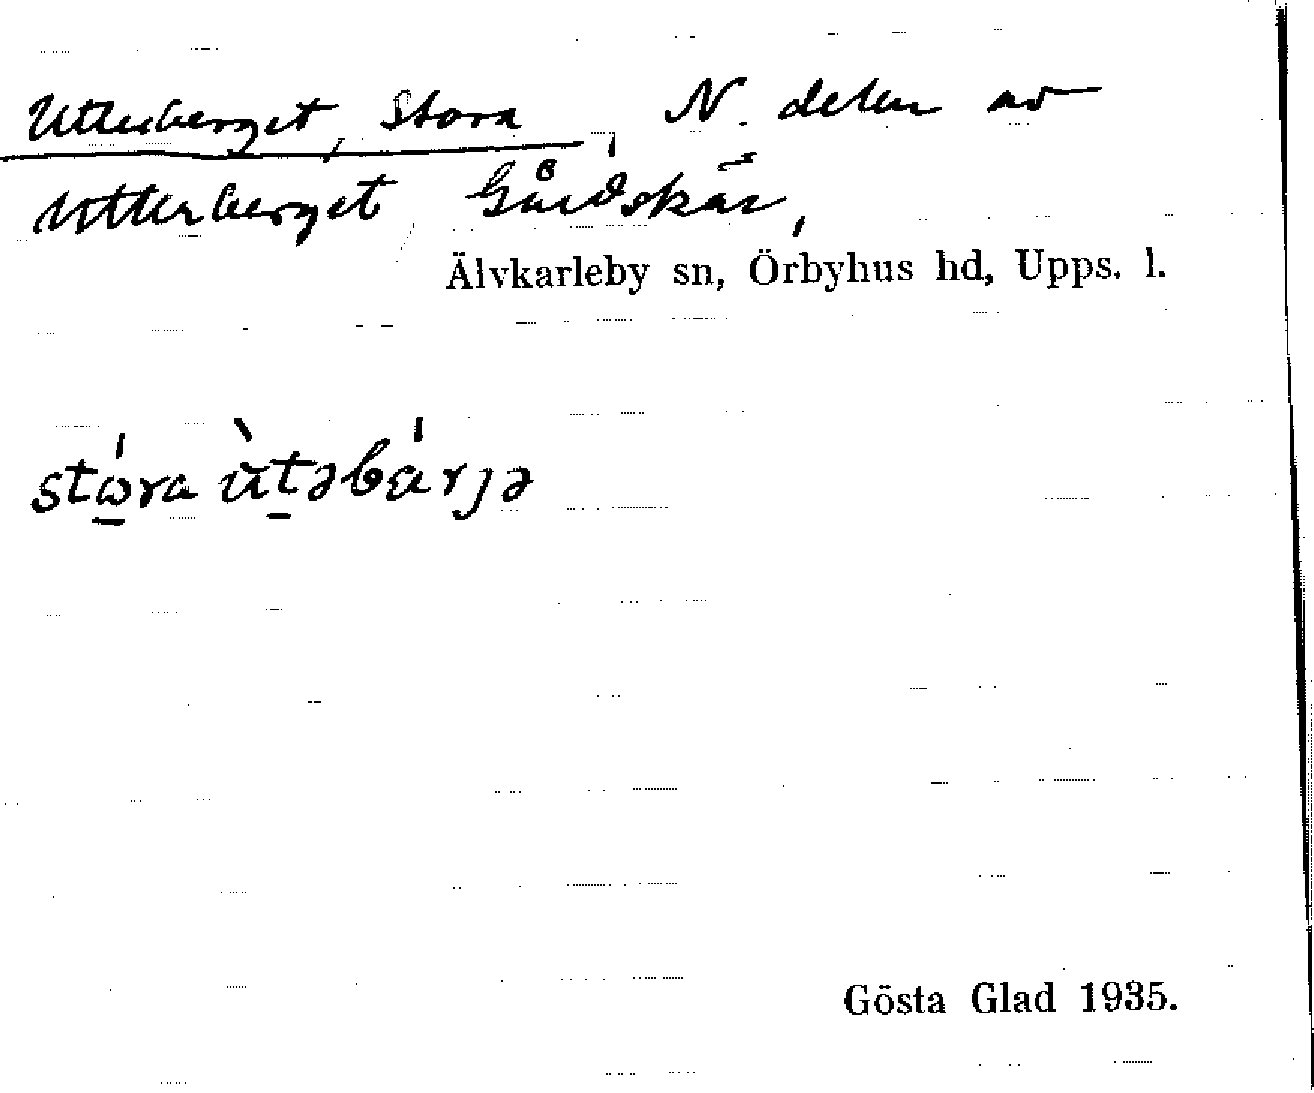 Utterberget, Stora, N. delen av
Utterberget, Gårdskär,
Älvkarleby sn, Örbyhus hd, Upps. l.
stώ̱ra ùt̠əbárjə
Gösta Glad 1935.